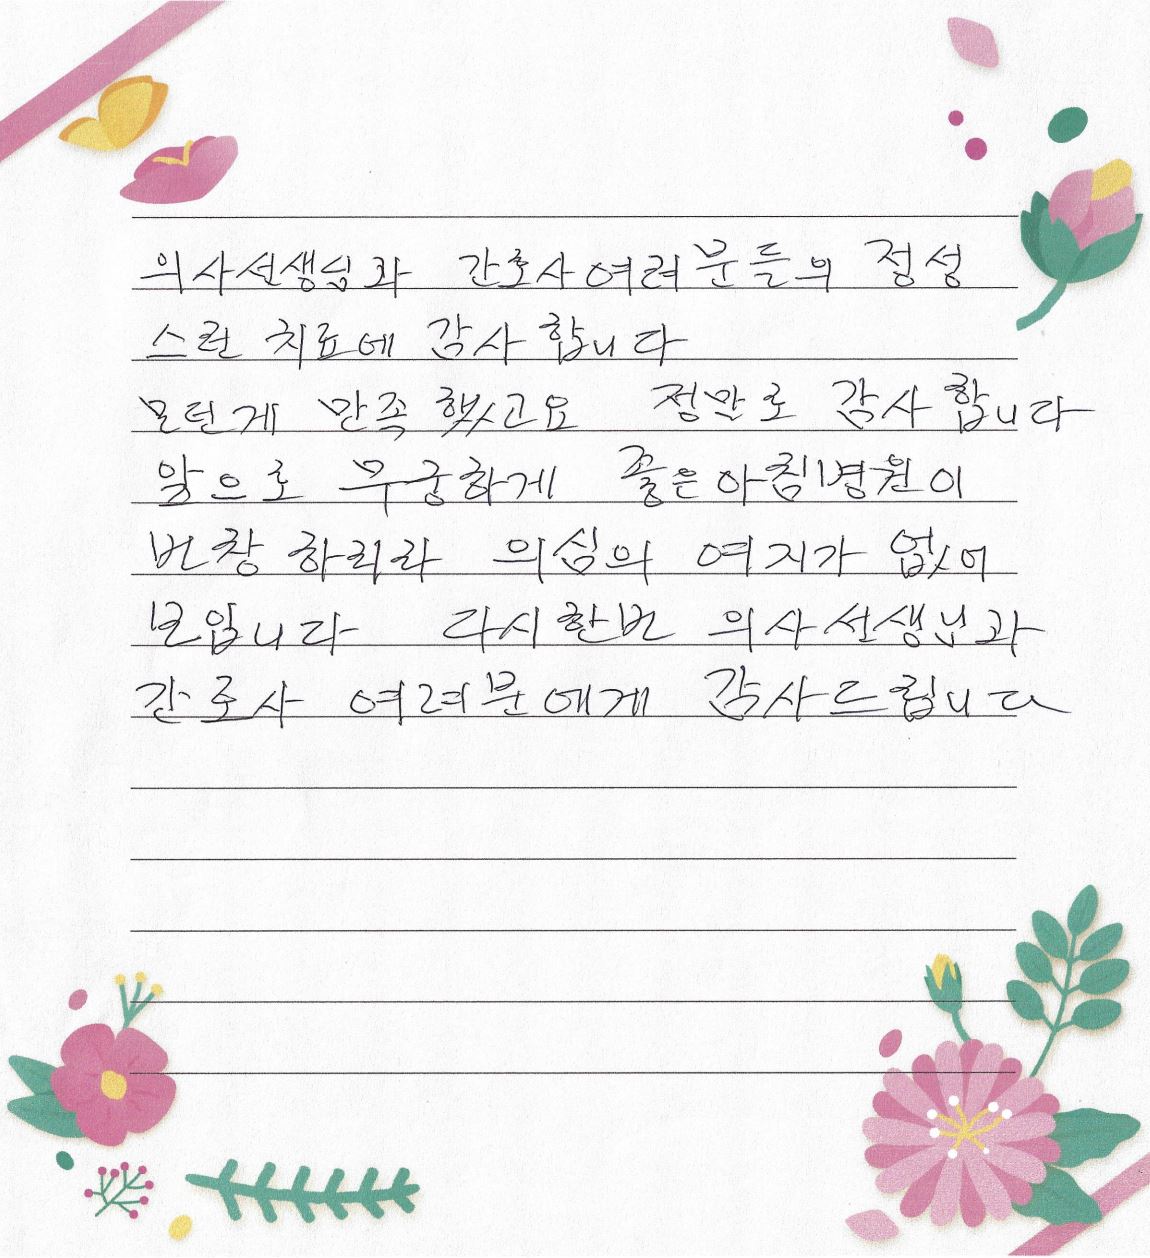 의사선생님과 간호사여러분들의 정성
스런 치료에 감사합니다
모던게 만족했고요 정말로 감사합니다
앞으로 무궁하게 좋은아침병원이
번창하리라 의심의 여지가 없어
보입니다 다시한번 의사선생님과
간호사 여러분에게 감사드립니다